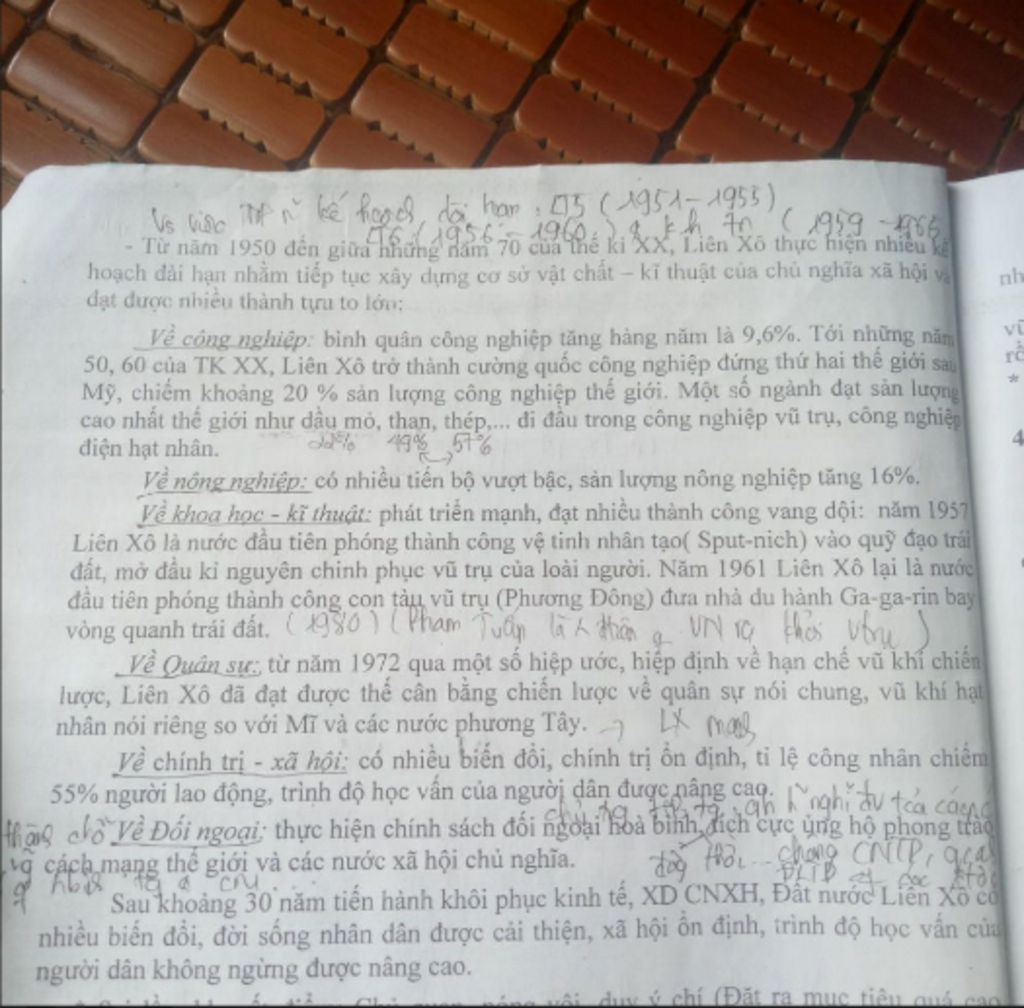 Vs việc kế hoạch dài hạn: (1951-1955)
(1956 - 1960) (1959 - 1965
- Từ năm 1950 đến giữa những năm 70 của thế kỉ XX, Liên Xô thực hiện nhiều kế
hoạch dài hạn nhằm tiếp tục xây dựng cơ sở vật chất – kĩ thuật của chủ nghĩa xã hội và
đạt được nhiều thành tựu to lớn:
Về công nghiệp: bình quân công nghiệp tăng hàng năm là 9,6%. Tới những năm
50, 60 của TK XX, Liên Xô trở thành cường quốc công nghiệp đứng thứ hai thế giới sau
Mỹ, chiếm khoảng 20 % sản lượng công nghiệp thế giới. Một số ngành đạt sản lượng
cao nhất thế giới như dầu mỏ, than, thép,... đi đầu trong công nghiệp vũ trụ, công nghiệp
điện hạt nhân.
49% 57%
Về nông nghiệp: có nhiều tiến bộ vượt bậc, sản lượng nông nghiệp tăng 16%.
Về khoa học - kĩ thuật: phát triển mạnh, đạt nhiều thành công vang dội: năm 1957
Liên Xô là nước đầu tiên phóng thành công vệ tinh nhân tạo( Sput-nich) vào quỹ đạo trái
đất, mở đầu kỉ nguyên chinh phục vũ trụ của loài người. Năm 1961 Liên Xô lại là nước
đầu tiên phóng thành công con tàu vũ trụ (Phương Đông) đưa nhà du hành Ga-ga-rin bay
vòng quanh trái đất. (1980) (Phạm Tuân là VN )
Về Quân sự: từ năm 1972 qua một số hiệp ước, hiệp định về hạn chế vũ khí chiến
lược, Liên Xô đã đạt được thế cân bằng chiến lược về quân sự nói chung, vũ khí hạt
nhân nói riêng so với Mĩ và các nước phương Tây. → LX mạnh
Về chính trị - xã hội: có nhiều biến đổi, chính trị ổn định, tỉ lệ công nhân chiếm
55% người lao động, trình độ học vấn của người dân được nâng cao.
Về Đối ngoại: thực hiện chính sách đối ngoại hoà bình, tích cực ủng hộ phong trào
cách mạng thế giới và các nước xã hội chủ nghĩa.
Sau khoảng 30 năm tiến hành khôi phục kinh tế, XD CNXH, Đất nước Liên Xô có
nhiều biến đổi, đời sống nhân dân được cải thiện, xã hội ổn định, trình độ học vấn của
người dân không ngừng được nâng cao.
duy ý chí (Đặt ra mục tiêu quá cao